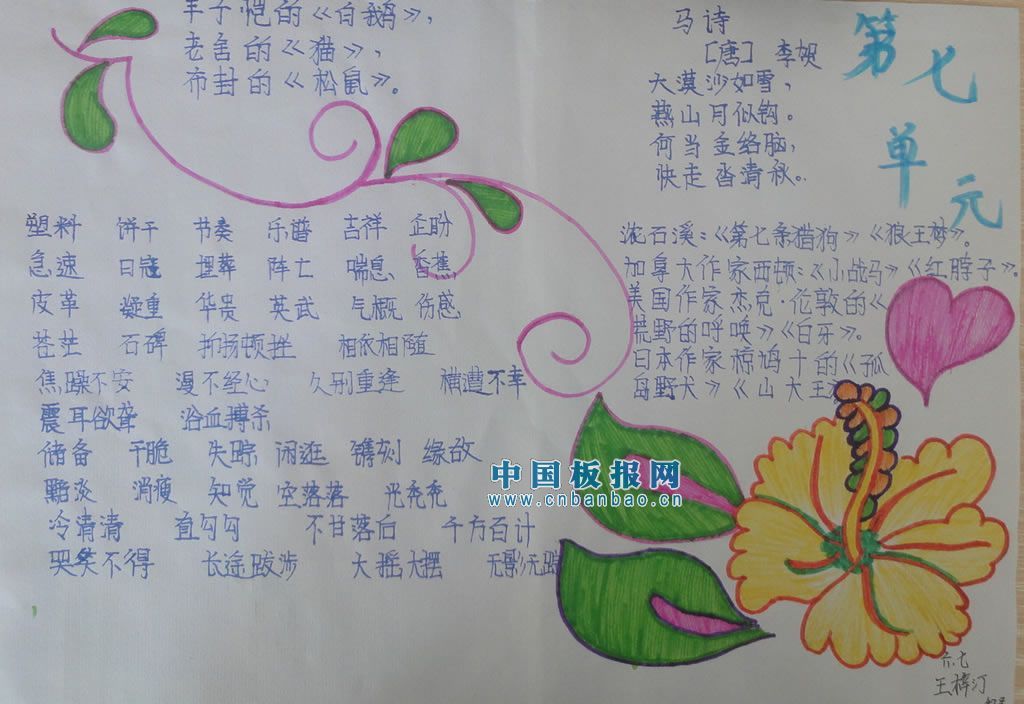 丰子恺的《白鹅》,
老舍的《猫》,
布封的《松鼠》。
马诗
[唐] 李贺
大漠沙如雪,
燕山月似钩。
何当金络脑,
快走沓清秋。
第七
单元
沈石溪:《第七条猎狗》《狼王梦》。
加拿大作家西顿:《小战马》《红脖子》。
美国作家杰克·伦敦的《
荒野的呼唤》《白牙》。
日本作家椋鸠十的《孤
岛野犬》《山大王
塑料 饼干 节奏 乐谱 吉祥 企盼
急速 日冠 埋葬 阵亡 喘息 香蕉
皮革 凝重 华贵 英武 气概 伤感
苍茫 石碑 抑扬顿挫 相依相随
焦躁不安 漫不经心 久别重逢 横遭不幸
震耳欲聋 浴血搏杀
储备 干脆 失踪 闲逛 镌刻 缘故
黯淡 消瘦 知觉 空落落 光秃秃
冷清清 直勾勾 不甘落后 千方百计
哭笑不得 长途跋涉 大摇大摆 无影无踪
中国板报网
www.cnbanbao.cn
六.七